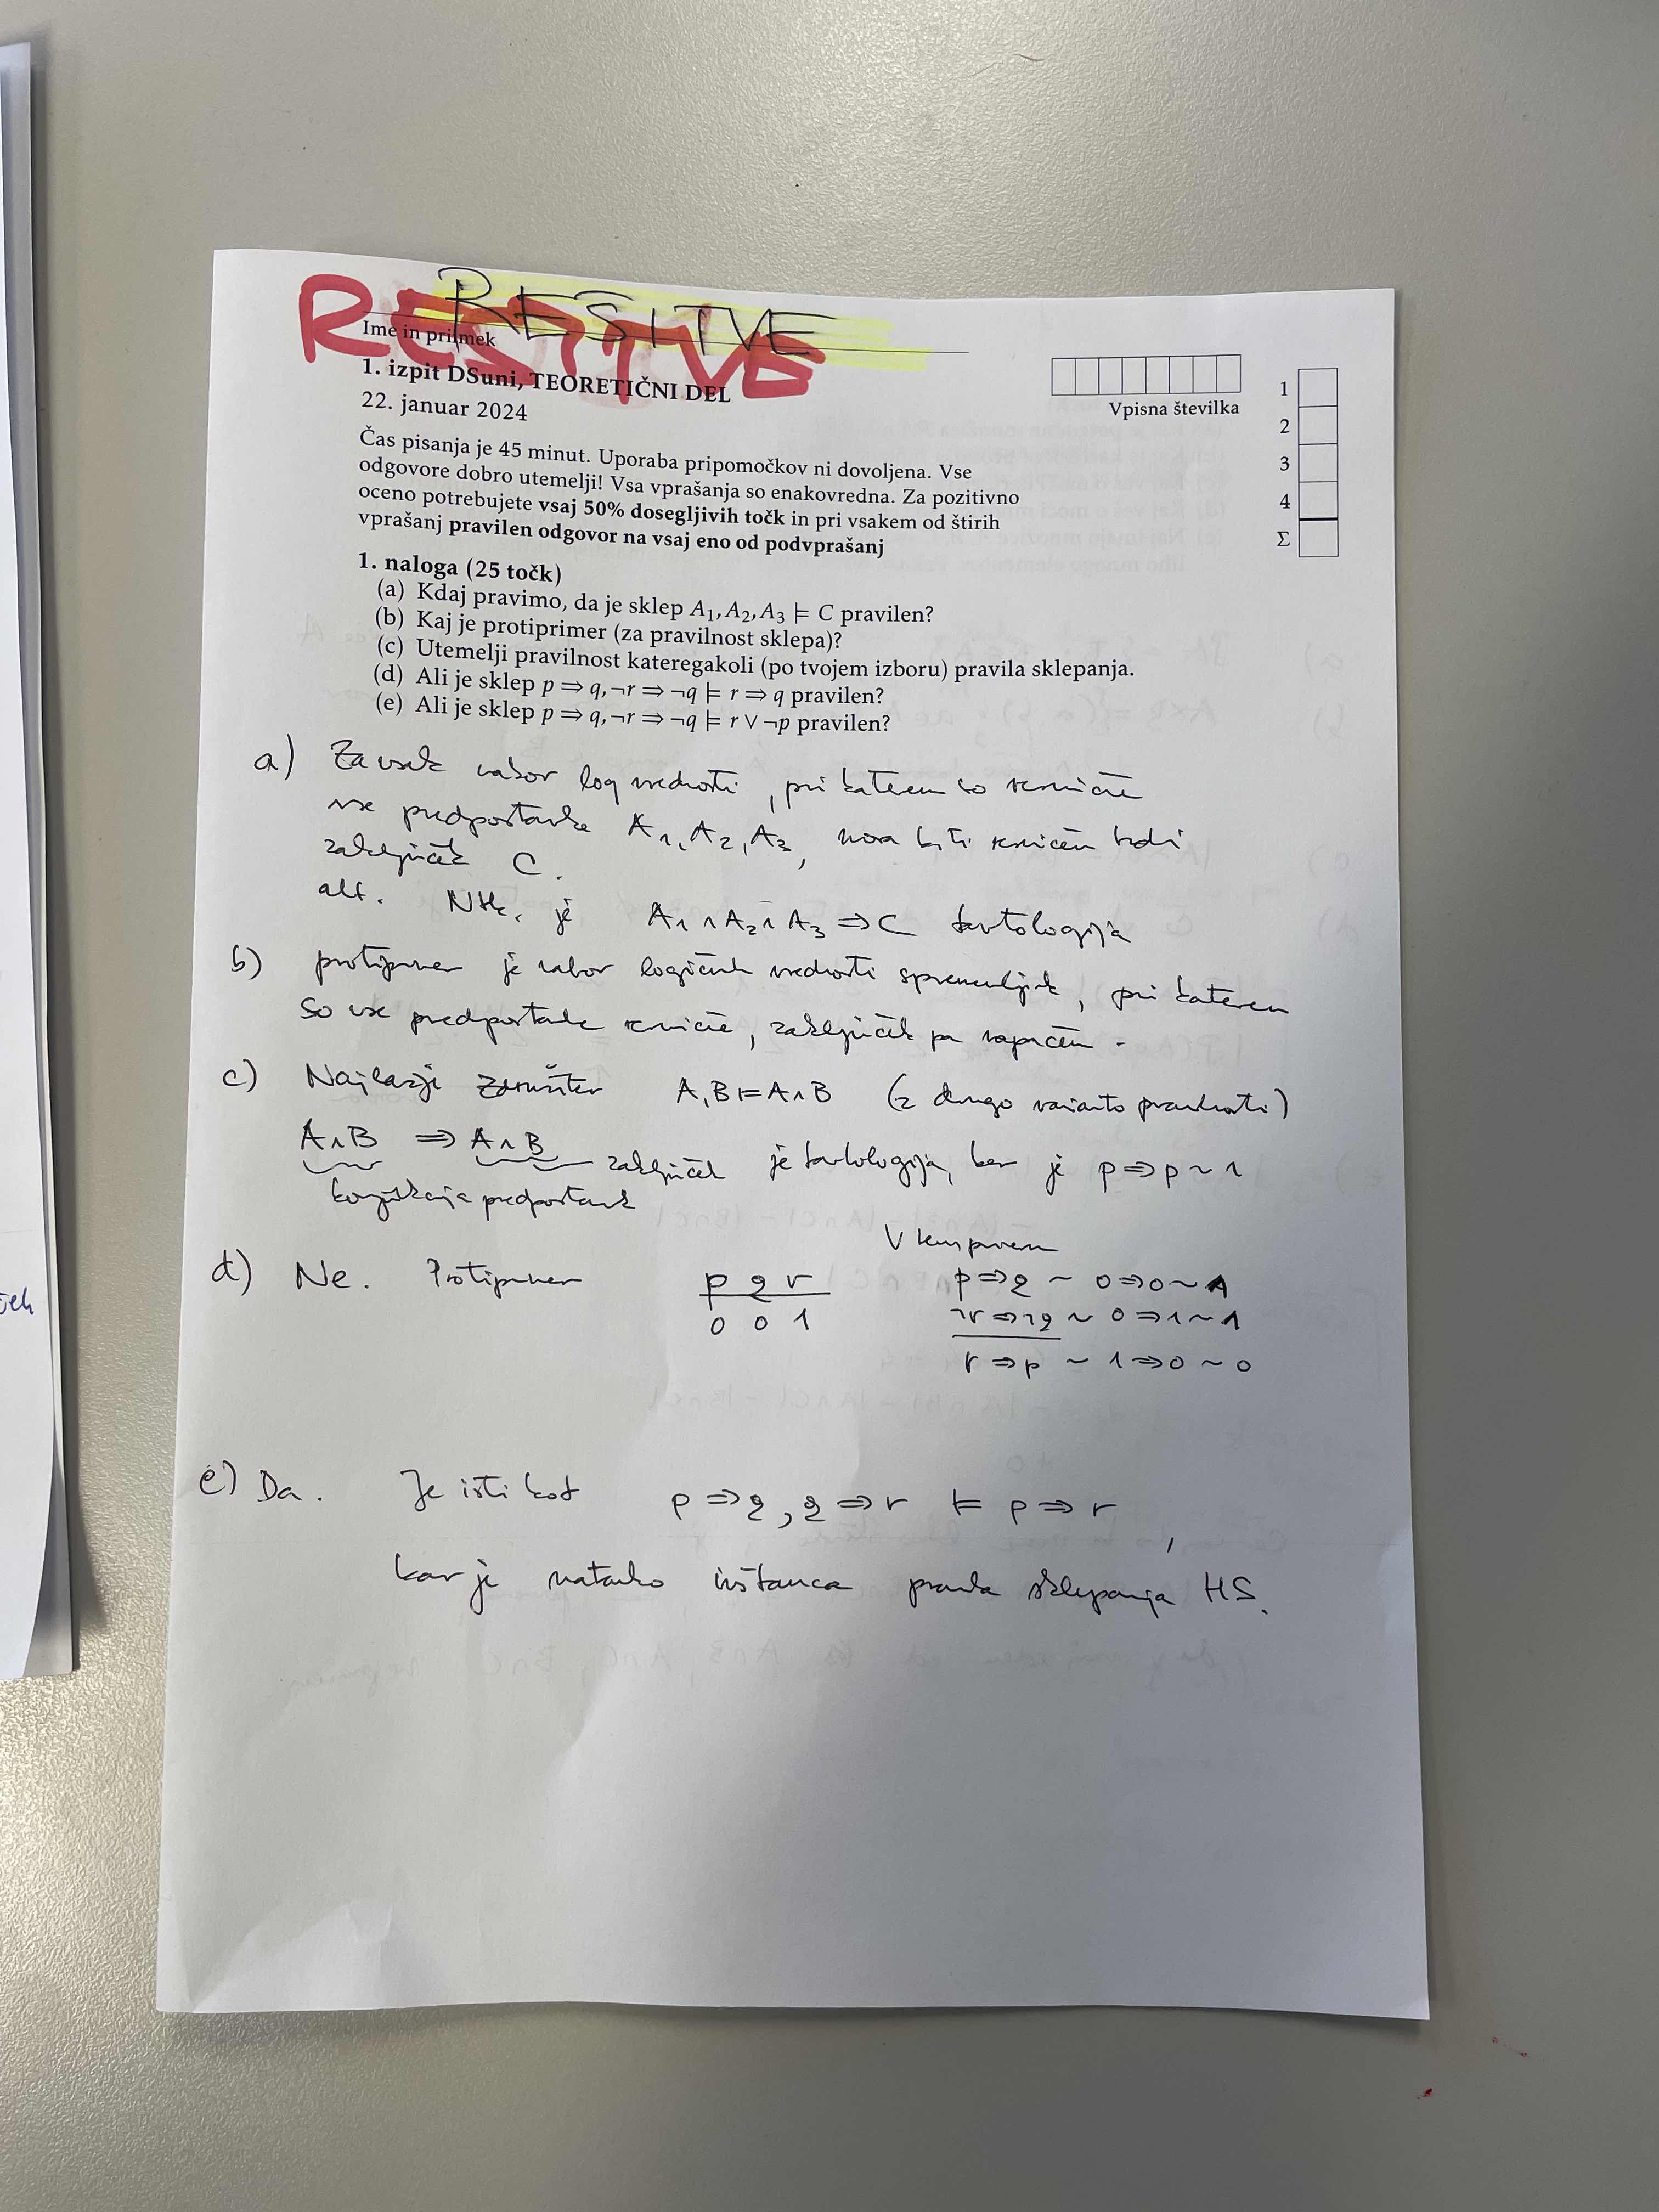 REŠITVE
REŠITVE
Ime in priimek
1. izpit DSuni, TEORETIČNI DEL
22. januar 2024
Vpisna številka
1
2
3
4
Σ
Čas pisanja je 45 minut. Uporaba pripomočkov ni dovoljena. Vse
odgovore dobro utemelji! Vsa vprašanja so enakovredna. Za pozitivno
oceno potrebujete vsaj 50% dosegljivih točk in pri vsakem od štirih
vprašanj pravilen odgovor na vsaj eno od podvprašanj
1. naloga (25 točk)
(a) Kdaj pravimo, da je sklep A₁, A₂, A₃ ⊨ C pravilen?
(b) Kaj je protiprimer (za pravilnost sklepa)?
(c) Utemelji pravilnost kateregakoli (po tvojem izboru) pravila sklepanja.
(d) Ali je sklep p ⇒ q, ¬r ⇒ ¬q ⊨ r ⇒ q pravilen?
(e) Ali je sklep p ⇒ q, ¬r ⇒ ¬q ⊨ r ∨ ¬p pravilen?
a) Za vsak nabor log vrednosti, pri katerem so resnične
vse predpostavke A₁, A₂, A₃, mora biti resničen tudi
zaključek C.
alt. Ntk. je A₁ ∧ A₂ ∧ A₃ ⇒ C tavtologija
b) protiprimer je nabor logičnih vrednosti spremenljivk, pri katerem
so vse predpostavke resnične, zaključek pa napačen.
c) Najlažje Združitev A, B ⊨ A ∧ B (z drugo varianto pravilnosti)
A ∧ B ⇒ A ∧ B zaključek je tavtologija, ker je p ⇒ p ~ 1
konjunkcija predpostavk
d) Ne. Protiprimer p q r
0 0 1
V tem primeru
p ⇒ q ~ 0 ⇒ 0 ~ 1
¬r ⇒ ¬q ~ 0 ⇒ 1 ~ 1
r ⇒ p ~ 1 ⇒ 0 ~ 0
e) Da. Je isti kot p ⇒ q, q ⇒ r ⊨ p ⇒ r,
kar je natanko inštanca pravila sklepanja HS.